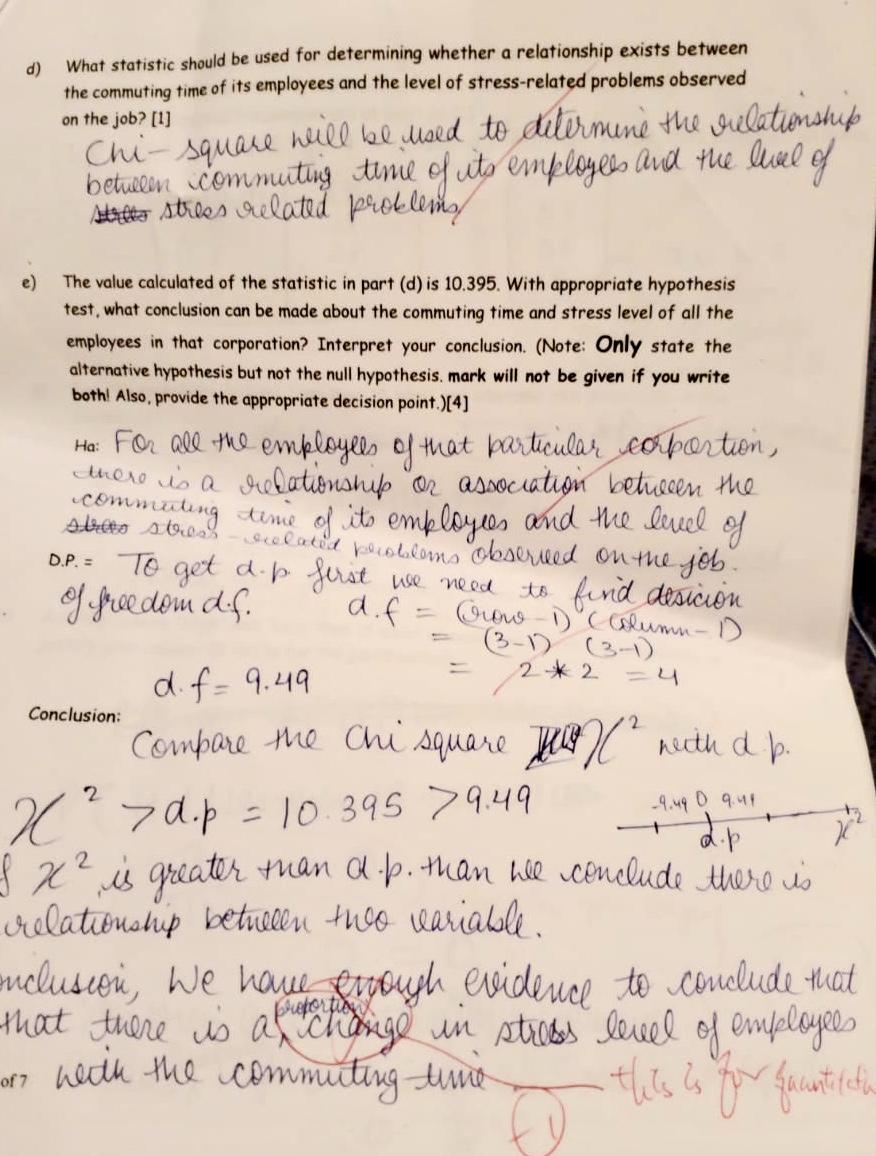 d) What statistic should be used for determining whether a relationship exists between
the commuting time of its employees and the level of stress-related problems observed
on the job? [1]
Chi-square will be used to determine the relationship
between commuting time of its employees and the level of
stress related problems
e) The value calculated of the statistic in part (d) is 10.395. With appropriate hypothesis
test, what conclusion can be made about the commuting time and stress level of all the
employees in that corporation? Interpret your conclusion. (Note: Only state the
alternative hypothesis but not the null hypothesis. mark will not be given if you write
both! Also, provide the appropriate decision point.)[4]
Ha: For all the employees of that particular corportion,
there is a relationship or association between the
commuting time of its employees and the level of
stress stress-related problems observed on the job.
D.P. = To get d.p first we need to find desicion
of freedom d.f. d.f = (row-1) (column-1)
= (3-1) (3-1)
= 2*2 = 4
d.f = 9.49
Conclusion:
Compare the Chi square χ² with d.p.
χ² > d.p = 10.395 > 9.49
-9.49 0 9.49
d.p χ²
χ² is greater than d.p. than we conclude there is
relationship between two variable.
onclusion, We have enough evidence to conclude that
that there is a proportion change in stress level of employees
of 7 with the commuting time
this is for quantitativ
-1